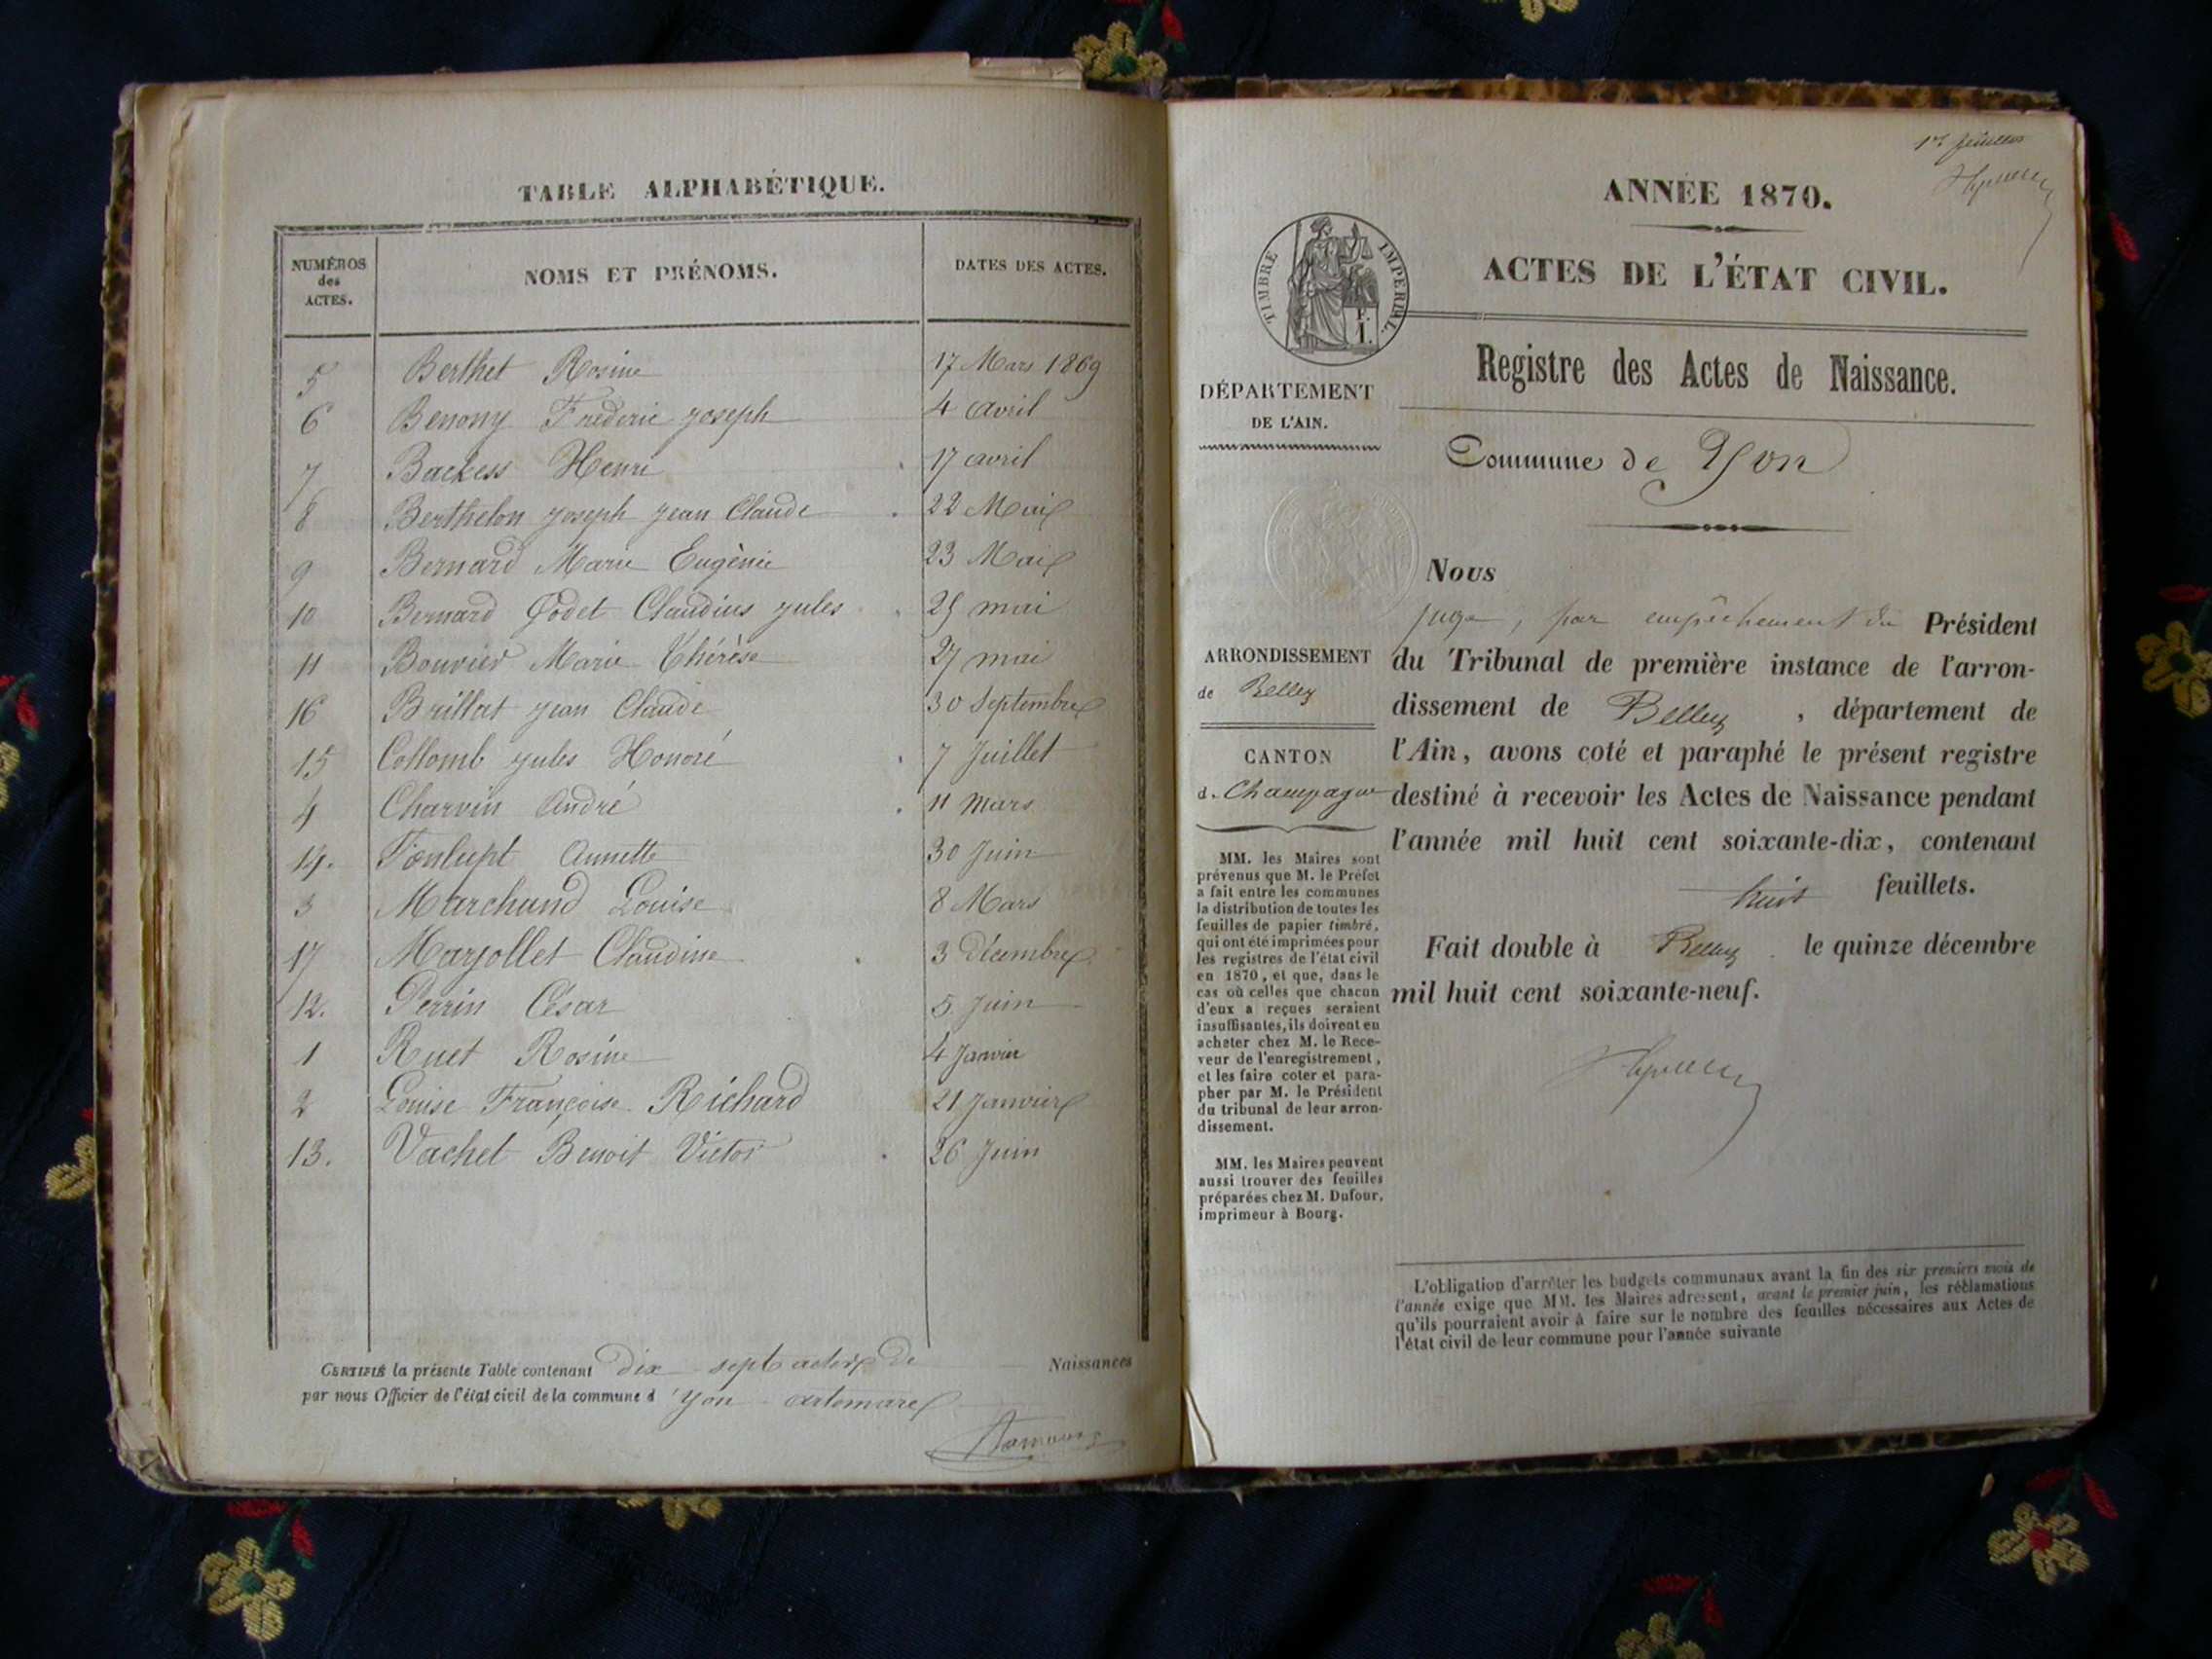 TABLE ALPHABÉTIQUE.
NUMÉROS des ACTES. NOMS ET PRÉNOMS. DATES DES ACTES.
5 Berthet Rosine 17 Mars 1869
6 Benony Frédéric joseph 4 avril
7 Backess Henri 17 avril
8 Berthelon joseph jean Claude 22 Mai
9 Bernard Marie Eugènie 23 Mai
10 Bernard Godet Claudius jules 25 mai
11 Bouvier Marie Thérèse 27 mai
16 Brillat jean Claude 30 Septembre
15 Collomb jules Honoré 7 Juillet
4 Charvin André 11 Mars
14. Fonlupt Annette 30 Juin
3 Marchand Louise 8 Mars
17 Marjollet Claudine 3 Décembre
12. Perrin César 5 Juin
1 Ruet Rosine 4 Janvier
2 Louise Françoise Richard 21 Janvier
13. Vachet Benoit Victor 26 Juin
CERTIFIÉ la présente Table contenant dix sept actes de Naissances
par nous Officier de l'état civil de la commune d'yon artemare
1er feuillet
ANNÉE 1870.
ACTES DE L'ÉTAT CIVIL.
TIMBRE IMPERIAL.
Registre des Actes de Naissance.
DÉPARTEMENT
DE L'AIN.
Commune de Yon
Nous
juge, par empêchement du Président
du Tribunal de première instance de l'arron-
dissement de Belley, département de
l'Ain, avons coté et paraphé le présent registre
destiné à recevoir les Actes de Naissance pendant
l'année mil huit cent soixante-dix, contenant
huit feuillets.
Fait double à Belley. le quinze décembre
mil huit cent soixante-neuf.
ARRONDISSEMENT
de Belley
CANTON
d. Champagne
MM. les Maires sont
prévenus que M. le Préfet
a fait entre les communes
la distribution de toutes les
feuilles de papier timbré,
qui ont été imprimées pour
les registres de l'état civil
en 1870, et que, dans le
cas où celles que chacun
d'eux a reçues seraient
insuffisantes, ils doivent en
acheter chez M. le Rece-
veur de l'enregistrement,
et les faire coter et para-
pher par M. le Président
du tribunal de leur arron-
dissement.
MM. les Maires peuvent
aussi trouver des feuilles
préparées chez M. Dufour,
imprimeur à Bourg.
L'obligation d'arrêter les budgets communaux avant la fin des six premiers mois de
l'année exige que MM. les Maires adressent, avant le premier juin, les réclamations
qu'ils pourraient avoir à faire sur le nombre des feuilles nécessaires aux Actes de
l'état civil de leur commune pour l'année suivante